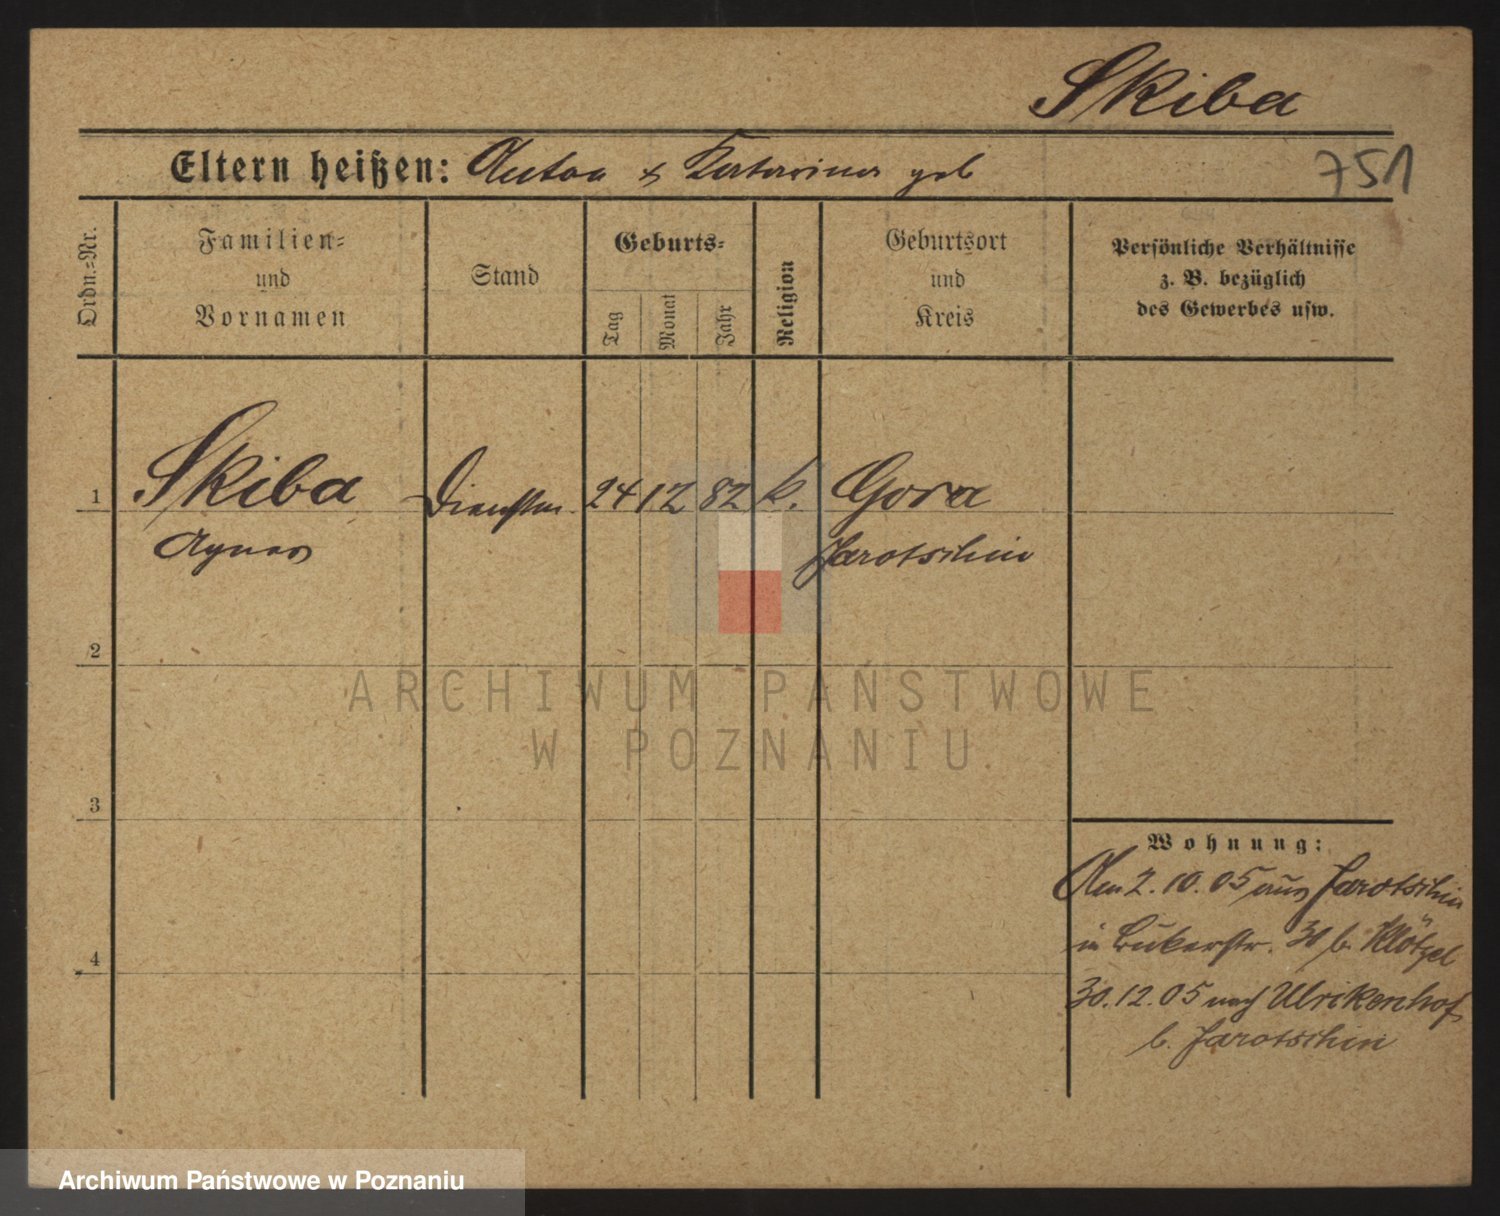 Skiba
Eltern heißen: Anton & Katarina geb
751
Ordn.-Nr.
Familien-
und
Vornamen
Stand
Geburts-
Tag
Monat
Jahr
Religion
Geburtsort
und
Kreis
Persönliche Verhältnisse
z. B. bezüglich
des Gewerbes usw.
1
Skiba
Agnes
24 12 82 k.
Gora
Jarotschin
2
3
4
Wohnung:
Am 2.10.05 aus Jarotschin
in Bukerstr. 30 b. Klötzel
30.12.05 nach Ulrikenhof
b. Jarotschin
ARCHIWUM PAŃSTWOWE
W POZNANIU
Archiwum Państwowe w Poznaniu